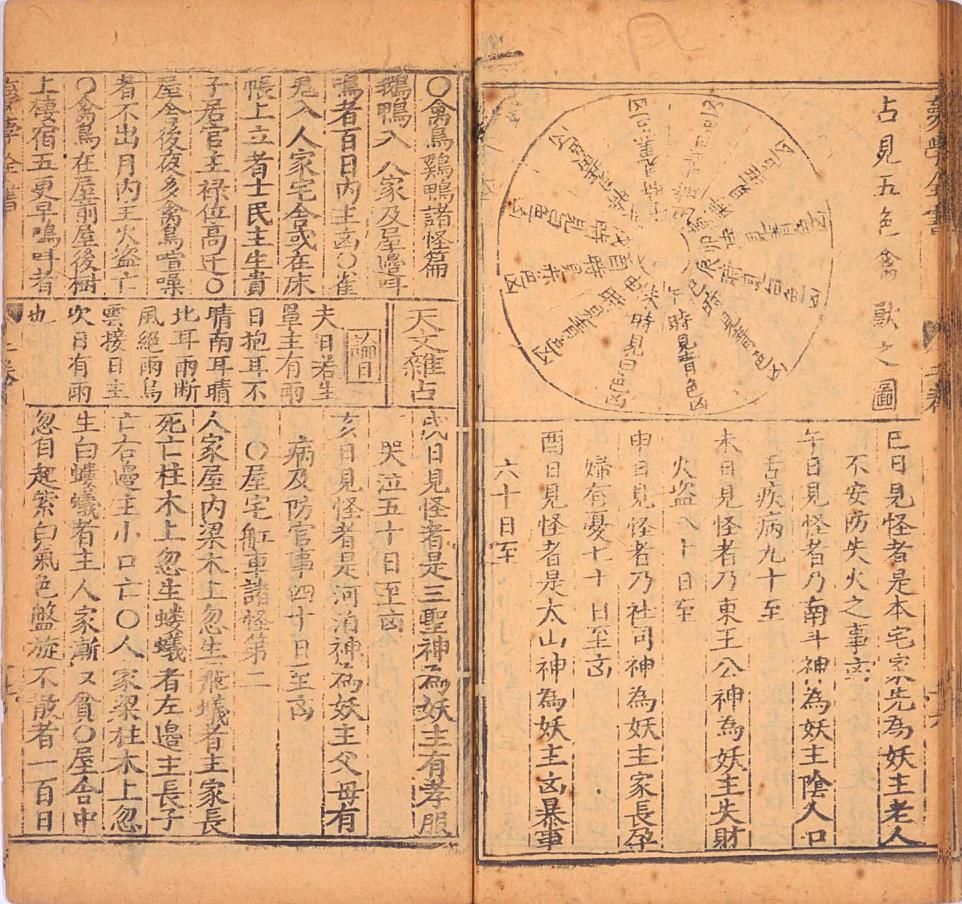 占見五色禽獸之圖
巳日見怪者是本宅家先為妖主老人
不安防失火之事
午日見怪者乃南斗神為妖主陰人口
舌疾病九十至
未日見怪者乃東王公神為妖主失財
火盗八十日至
申日見怪者乃社司神為妖主家長孕
婦有憂七十日至凶
酉日見怪者是太山神為妖主凶暴事
六十日至
午時見青色凶
未時見白色凶
酉時見赤色凶
○禽鳥鷄鴨諸怪篇
鵝鴨入人家及屋邊呌
鳴者百日内主凶○雀
兎入人家宅舍或在床
帳上立者士民主生貴
子居官主禄位高迁○
屋舍後夜多禽鳥喧噪
者不出月内主火盗亡
○禽鳥在屋前屋後樹
上棲宿五更早鳴呌者
天文雜占
論日
夫日若生
暈主有雨
日抱耳不
晴南耳晴
北耳雨断
風絕雨烏
雲接日主
次日有雨
也
戌日見怪者是三聖神為妖主有孝服
哭泣五十日至凶
亥日見怪者是河泊神為妖主父母有
病及防官事四十日至凶
○屋宅舡車諸怪第二
人家屋内梁木上忽生飛蟻者主家長
死亡柱木上忽生螻蟻者左邉主長子
亡右邉主小口亡○人家梁柱木上忽
生白螻蟻者主人家漸又貧○屋舍中
忽自起紫白氣色盤旋不散者一百日